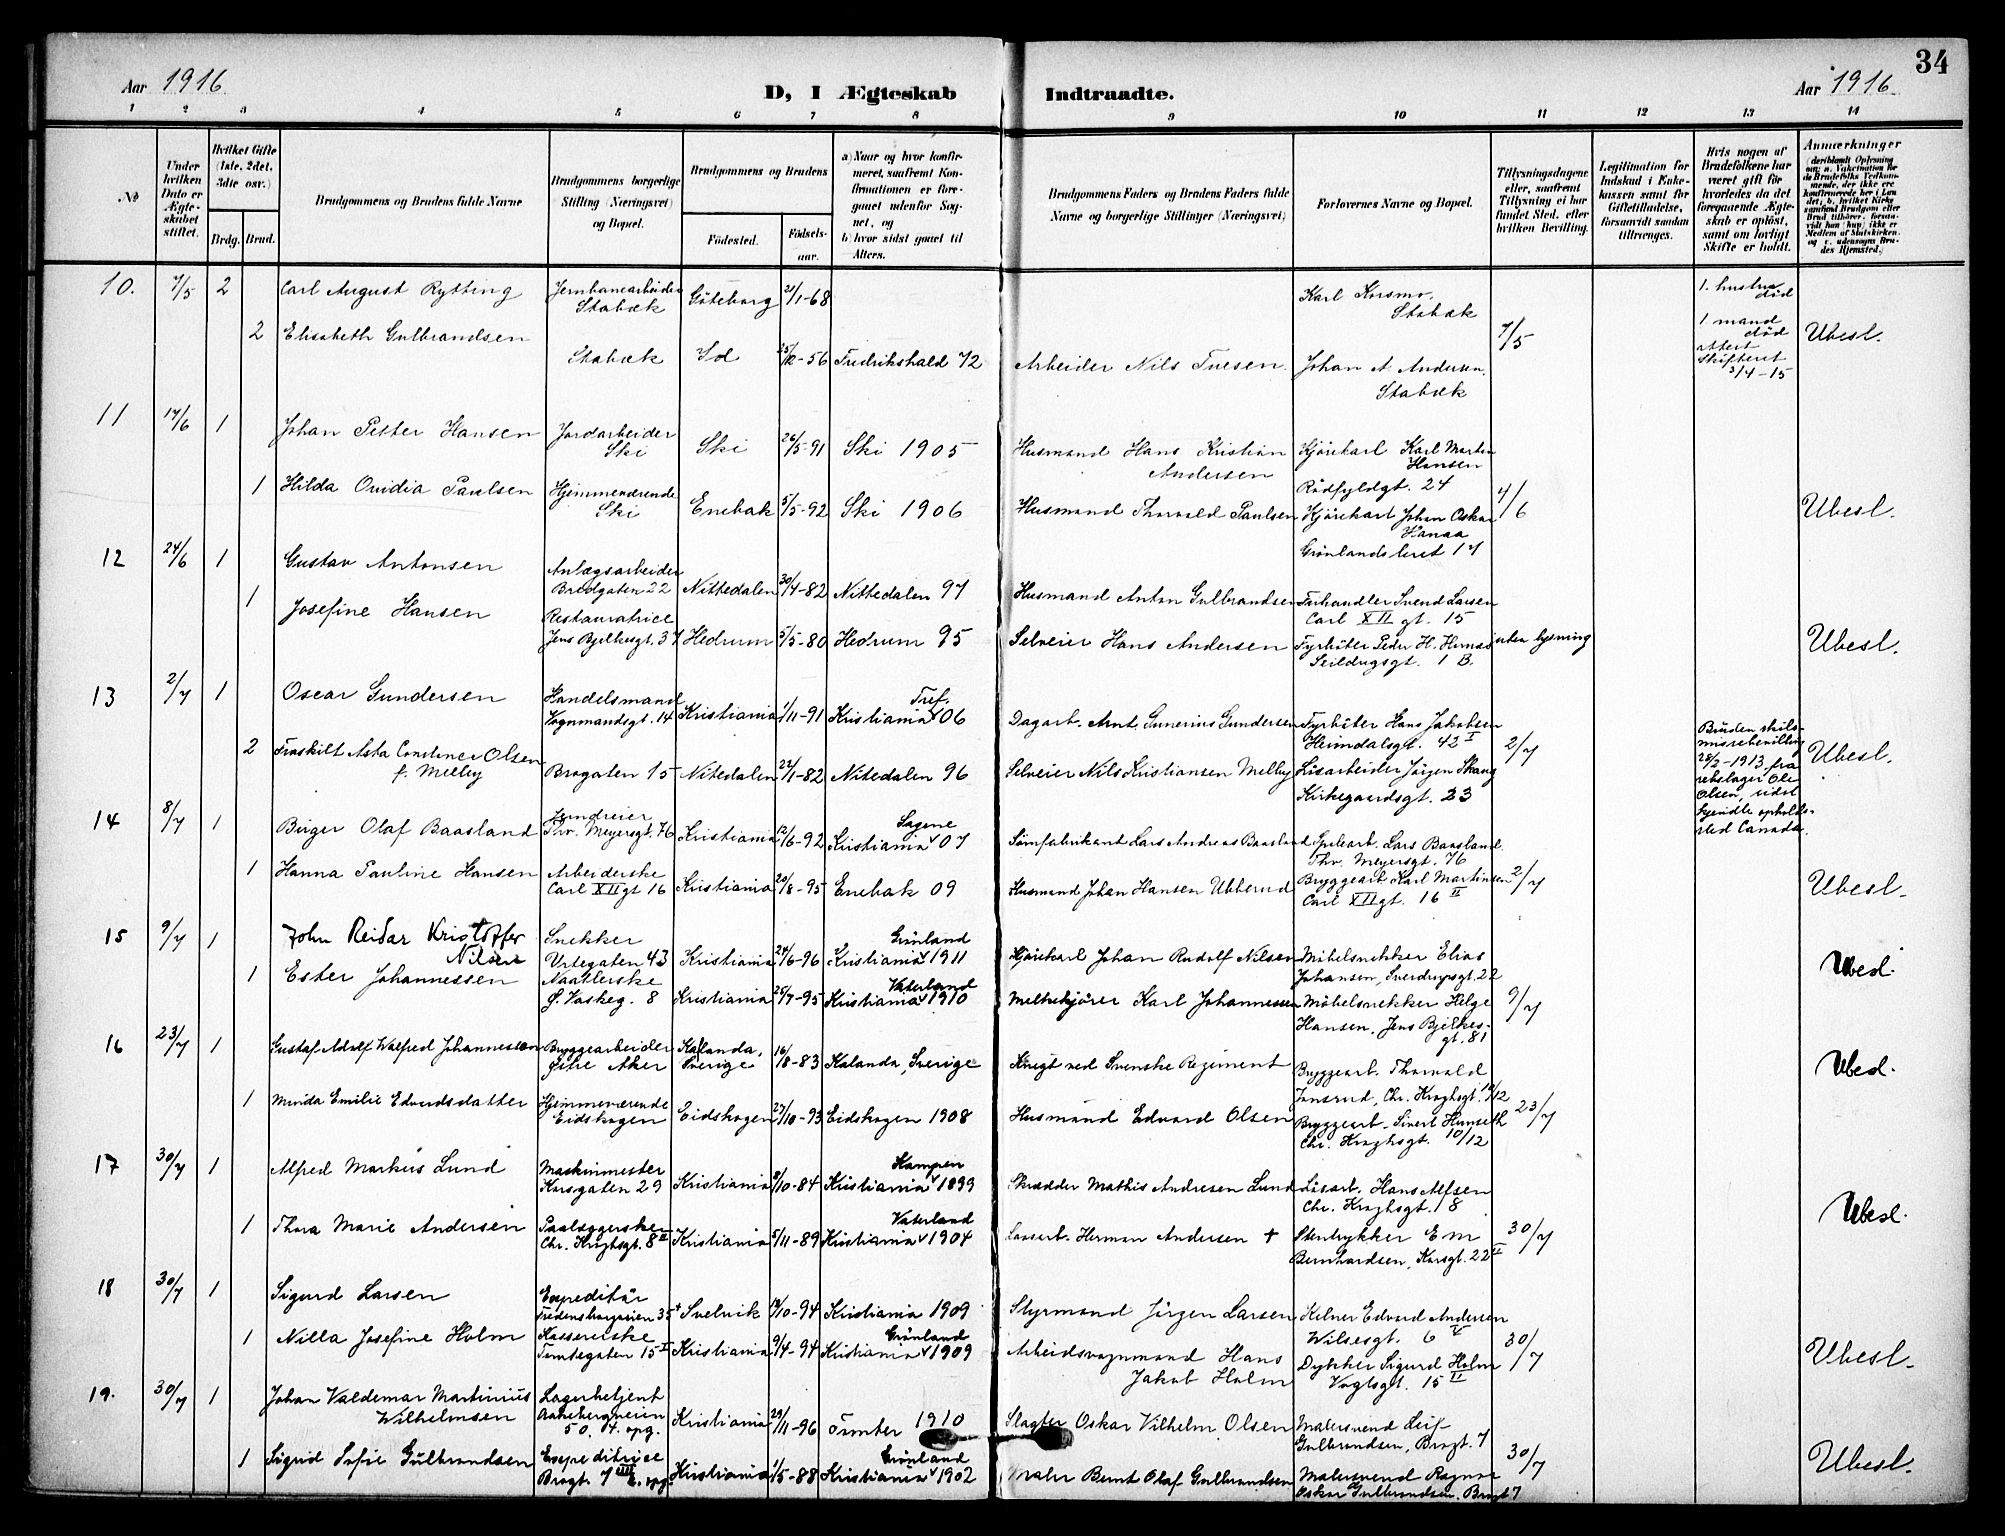 34
Aar 1916
D, I Ægteskab Indtraadte.
Aar 1916
1 2 3 4 5 6 7 8 9 10 11 12 13 14
№
Under hvilken Dato er Ægteskabet stiftet.
Hvilket Gifte (1ste, 2det, 3die osv.)
Brdg. Brud.
Brudgommens og Brudens fulde Navne
Brudgommens borgerlige Stilling (Næringsvei) og Bopæl.
Brudgommens og Brudens
Fødested. Fødselsaar.
a) Naar og hvor konfirmeret, saafremt Konfirmationen er foregaaet udenfor Sognet, og
b) hvor sidst gaaet til Alters.
Brudgommens Faders og Brudens Faders fulde Navne og borgerlige Stillinger (Næringsvei)
Forlovernes Navne og Bopæl.
Tillysningsdagene eller, saafremt Tillysning ei har fundet Sted, efter hvilken Bevilling.
Legitimation for Indskud i Enkekassen samt for Giftetilladelse, forsaavidt saadan tiltrænges.
Hvis nogen af Brudefolkene har været gift før, hvorledes da det foregaaende Ægteskab er opløst, samt om lovligt Skifte er holdt.
Anmærkninger
10. 7/5 2 Carl August Rytting Jernbanearbeider Stabæk Göteborg 21/1-68 Karl Korsmo, Stabæk 1. hustru død
2 Elisabeth Gulbrandsen Stabæk Id 25/12-56 Fredrikshald 72 Arbeider Nils Tuesen. Johan A. Andersen, Stabæk 7/5 1 mand død attest skifteret 3/4-15 Ubesl.
11 17/6 1 Johan Petter Hansen Jordarbeider Ski Ski 26/5-91 Ski 1905 Husmand Hans Kristian Andersen Kjørekarl Karl Martin Hansen Rødfyldgt. 24
1 Hilda Ovidia Paulsen Hjemmeværende Ski Enebak 5/5-92 Ski 1906 Husmand Thorvald Paulsen Kjørekarl Johan Oskar Hanaa Grønlandsleret 17 4/6 Ubesl.
12 24/6 1 Gustav Antonsen Anlægsarbeider Brodgaten 22 Nittedalen 30/4-82 Nittedalen 97 Husmand Anton Gulbrandsen Fuhandler Svend Larsen Carl XII gt. 15
1 Josefine Hansen Restauratrice Jens Bjelkesgt. 37 Hedrum 5/5-80 Hedrum 95 Selveier Hans Andersen Fyrbøter Peder H. Hernæs Seildugsgt. 1 B. uten lysning Ubesl.
13 2/7 1 Oscar Gundersen Handelsmand Vognmandsgt. 14 Kristiania 1/11-91 Tref. Kristiania 06 Dagarb. Arnt Sunerius Gundersen Fyrbøter Hans Jakobsen Heimdalsgt. 42 I
2 Fraskilt Asta Constance Olsen f. Melby Brogaten 15 Nitedalen 22/1-82 Nitedalen 96 Selveier Nils Kristiansen Melby Løsarbeider Jørgen Skaug Kirkegaardsgt. 23 2/7 Bruden skilsmissebevilling 28/2-1913 fra rebslager Ole Olsen, sidst kjendte opholdssted Canada. Ubesl.
14 8/7 1 Birger Olaf Baasland Jerndreier Thv. Meyersgt. 76 Kristiania 12/6-92 Sagene Kristiania 07 Sømfabrikant Lars Andreas Baasland Spilearb. Lars Baasland. Thv. Meyersgt. 76
1 Hanna Pauline Hansen Arbeiderske Carl XII gt 16 Kristiania 20/8-95 Enebak 09 Husmand Johan Hansen Ubberud Bryggearb. Karl Martinsen Carl XII gt. 16 II 2/7 Ubesl.
15 9/7 1 John Reidar Kristoffer Nilsen Snekker Urtegaten 43 Kristiania 24/6-96 Grønland Kristiania 1911 Kjørekarl Johan Rudolf Nilsen Møbelsnekker Elias Johansen, Sverdrupsgt. 22
1 Ester Johannessen Naatlerske Ø. Vaskeg. 8 Kristiania 25/7-95 Vaterland Kristiania 1910 Melkekjører Karl Johannessen Møbelsnekker Helge Hansen, Jens Bjelkesgt. 81 9/7 Ubesl.
16 23/7 1 Gustaf Adolf Walfred Johannesson Bryggearbeider Østre Aker Kalanda, Sverige 16/8-83 Kalanda, Sverige Knegt ved Svenske Regiment Bryggearb. Thorvald Jonsrud, Chr. Kroghsgt. 10/12
1 Minda Emilie Edvardsdatter Hjemmeværende Eidskogen Eidskogen 27/10-93 Eidskogen 1908 Husmand Edvard Olsen Bryggearb. Sivert Humseth Chr. Kroghsgt. 10/12 23/7 Ubesl.
17 30/7 1 Alfred Markus Lund Maskinmester Korsgaten 29 Kristiania 8/10-84 Kampen Kristiania 1899 Skrædder Mathis Andresen Lund Løsarb. Hans Alfsen Chr. Kroghsgt. 18
1 Thora Marie Andersen Paalæggerske Chr. Kroghsgt. 8 II Kristiania 5/11-89 Vaterland Kristiania 1904 Løsarb. Herman Andersen † Stentrykker Em Bernhardsen, Korsgt. 22 II 30/7 Ubesl.
18 30/7 1 Sigurd Larsen Expeditør Fredensborgveien 35 Svelvik 10/10-94 Kristiania 1909 Styrmand Jörgen Larsen Kelner Edvard Andersen Wilsesgt. 6 V
1 Nilla Josefine Holm Kassererske Tomtegaten 15 I Kristiania 9/4-94 Grønland Kristiania 1909 Arbeidsvognmand Hans Jakob Holm Dykker Sigurd Holm Vogtsgt. 15 II 30/7 Ubesl.
19. 30/7 1 Johan Valdemar Martinius Wilhelmsen Lagerbetjent Aakebergveien 50, 4. opg. Kristiania 29/11-96 Tomter 1910 Slagter Oskar Vilhelm Olsen Malersvend Leif Gulbrandsen, Brogt. 7
1 Sigrid Sofie Gulbrandsen Expeditrice Brogt. 7 III E. opg. Kristiania 1/5-88 Grønland Kristiania 1902 Maler Bernt Olaf Gulbrandsen Malersvend Ragnar Oskar Gulbrandsen. Brogt 7 30/7 Ubesl.